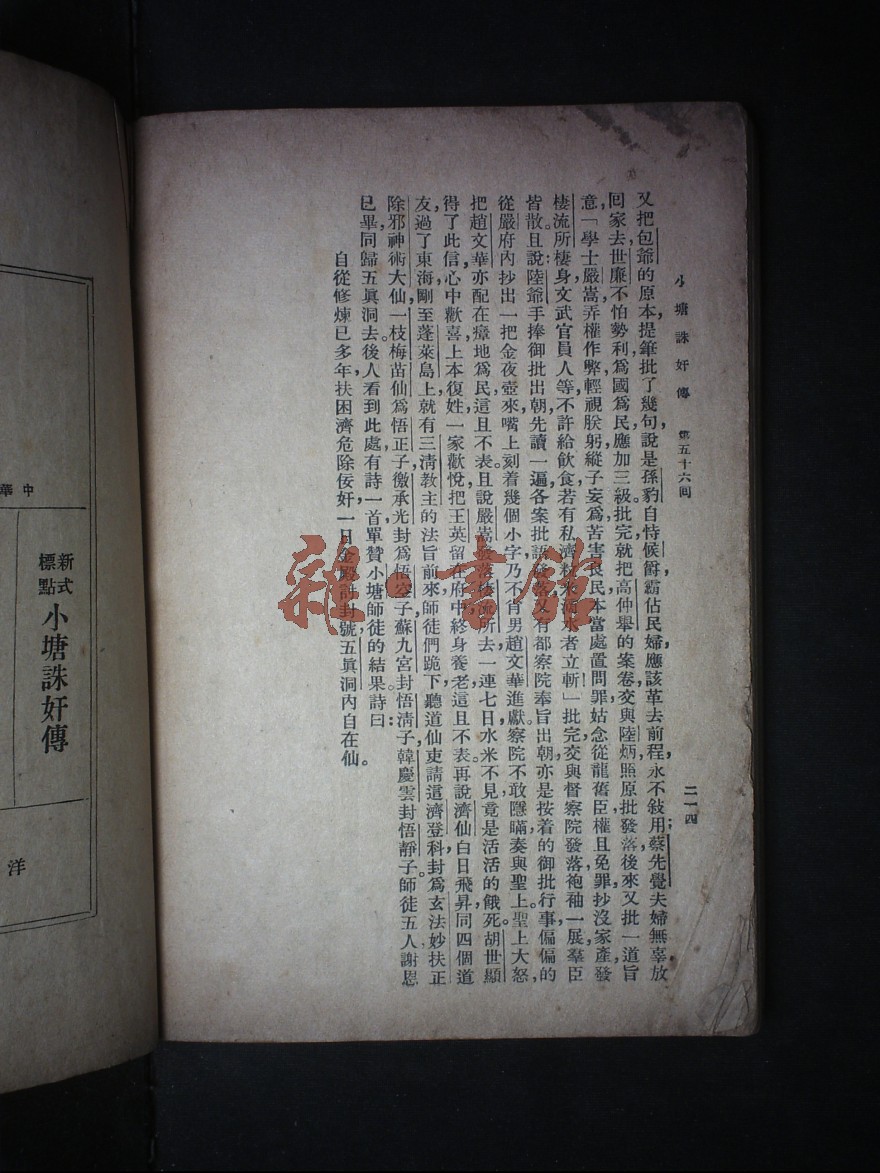 小塘誅奸傳 第五十六回 二一四
又把包爺的原本，提筆批了幾句說是孫豹自恃侯爵霸佔民婦應該革去前程，永不敍用；蔡先覺夫婦無辜放
回家去世廉不怕勢利爲國爲民，應加三級。批完就把高仲舉的案卷交與陸炳照原批發落後來又批一道旨
意，「學士嚴嵩弄權作弊輕視朕躬縱子妄爲苦害良民本當處置問罪姑念從龍舊臣權且免罪抄沒家產發
棲流所棲身文武官員人等不許給飲食若有私濟粒米滴水者立斬」批完交與督察院發落袍袖一展羣臣
皆散。且說陸爺手捧御批出朝先讀一遍，各案批語發落又有都察院奉旨出朝，亦是按着的御批行事偏偏的
從嚴府內抄出一把金夜壺來，嘴上刻着幾個小字乃不肖男趙文華進獻。察院不敢隱瞞奏與聖上。聖上大怒，
把趙文華亦配在瘴地爲民這且不表。且說嚴嵩發落棲流所去一連七日水米不見竟是活活的餓死。胡世顯
得了此信心中歡喜上本復姓，一家歡悅，把王英留在府中終身養老這且不表。再說濟仙白日飛昇同四個道
友，過了東海，剛至蓬萊島上就有三清教主的法旨前來師徒們跪下，聽道仙吏請這濟登科封爲玄法妙扶正
除邪神術大仙一枝梅苗仙爲悟正子徽承光封爲悟空子蘇九宮封悟淸子，韓慶雲封悟靜子。師徒五人謝恩
已畢，同歸五眞洞去。後人看到此處有詩一首單贊小塘師徒的結果。詩曰：
自從修煉已多年，扶困濟危除佞奸，一日金殿討封號，五眞洞內自在仙。
中華
新式標點
小塘誅奸傳
洋
雜·書館